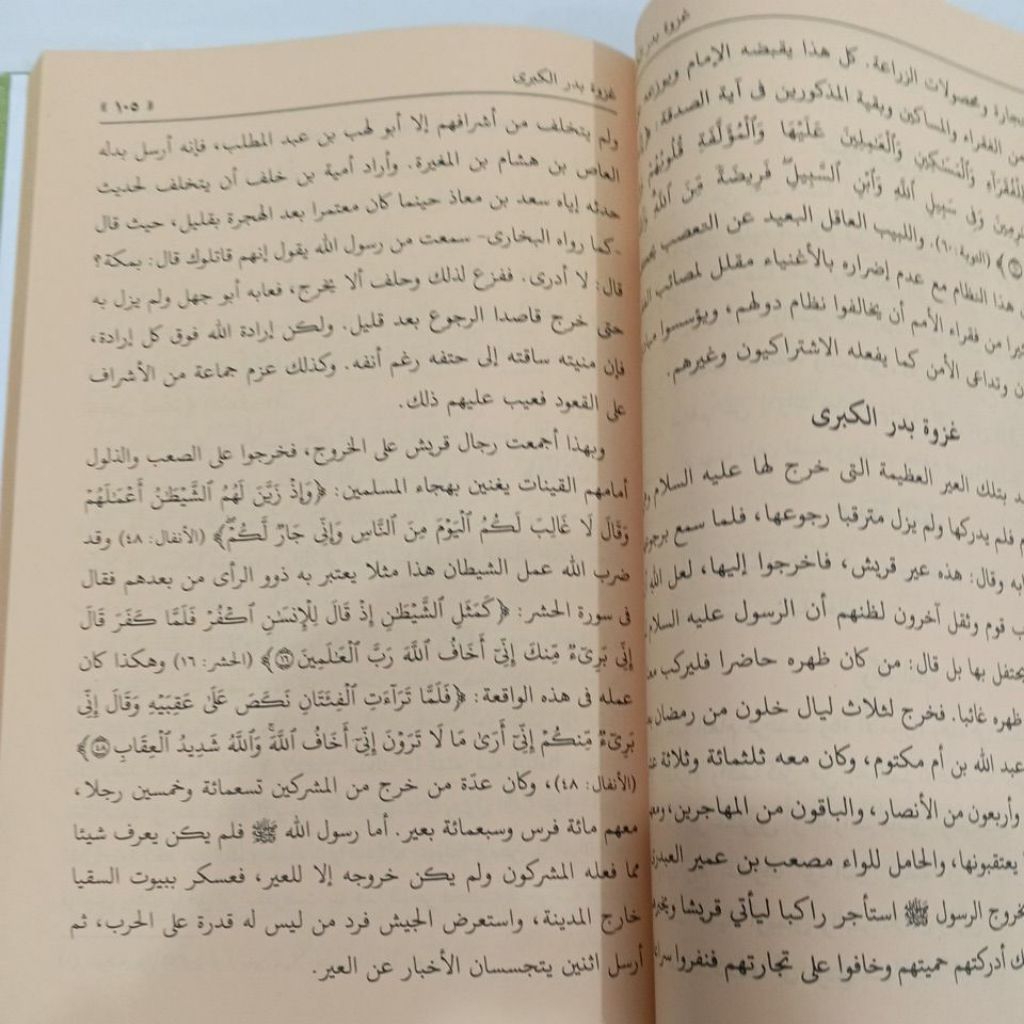 غزوة بدر
تجارة ومحصولات الزراعة. كل هذا يقبضه الإمام ويوزعه
من الفقراء والمساكين وبقية المذكورين فى آية الصدقة:
لِلْفُقَرَآءِ وَٱلْمَسَـٰكِينِ وَٱلْعَـٰمِلِينَ عَلَيْهَا وَٱلْمُؤَلَّفَةِ قُلُوبُهُمْ
وَفِى سَبِيلِ ٱللَّهِ وَٱبْنِ ٱلسَّبِيلِ ۖ فَرِيضَةً مِّنَ ٱللَّهِ
﴾ (التوبة: ٦٠). واللبيب العاقل البعيد عن التعصب
هذا النظام مع عدم إضراره بالأغنياء مقلل لمصائب
من فقراء الأمم أن يخالفوا نظام دولهم، ويؤسسوا
وتداعى الأمن كما يفعله الاشتراكيون وغيرهم.
غزوة بدر الكبرى
بتلك العير العظيمة التى خرج لها عليه السلام
فلم يدركها ولم يزل مترقبا رجوعها، فلما سمع
وقال: هذه عير قريش، فاخرجوا إليها، لعل الله
قوم وثقل آخرون لظنهم أن الرسول عليه السلام
يحتفل بها بل قال: من كان ظهره حاضرا فليركب
ظهره غائبا. فخرج لثلاث ليال خلون من رمضان
عبد الله بن أم مكتوم، وكان معه ثلثمائة وثلاثة
وأربعون من الأنصار، والباقون من المهاجرين،
يعتقبونها، والحامل للواء مصعب بن عمير
الرسول ﷺ استأجر راكبا ليأتي قريشا
أدركتهم حميتهم وخافوا على تجارتهم فنفروا
غزوة بدر الكبرى
« ١٠٥ »
ولم يتخلف من أشرافهم إلا أبو لهب بن عبد المطلب، فإنه أرسل بدله
العاص بن هشام بن المغيرة. وأراد أمية بن خلف أن يتخلف لحديث
حدثه إياه سعد بن معاذ حينما كان معتمرا بعد الهجرة بقليل، حيث قال
-كما رواه البخارى- سمعت من رسول الله يقول إنهم قاتلوك قال: بمكة؟
قال: لا أدرى. ففزع لذلك وحلف ألا يخرج، فعابه أبو جهل ولم يزل به
حتى خرج قاصدا الرجوع بعد قليل. ولكن إرادة الله فوق كل إرادة،
فإن منيته ساقته إلى حتفه رغم أنفه. وكذلك عزم جماعة من الأشراف
على القعود فعيب عليهم ذلك.
وبهذا أجمعت رجال قريش على الخروج، فخرجوا على الصعب والذلول
أمامهم القينات يغنين بهجاء المسلمين: ﴿وَإِذْ زَيَّنَ لَهُمُ ٱلشَّيْطَـٰنُ أَعْمَـٰلَهُمْ
وَقَالَ لَا غَالِبَ لَكُمُ ٱلْيَوْمَ مِنَ ٱلنَّاسِ وَإِنِّى جَارٌ لَّكُمْ ۖ﴾ (الأنفال: ٤٨) وقد
ضرب الله عمل الشيطان هذا مثلا يعتبر به ذوو الرأى من بعدهم فقال
فى سورة الحشر: ﴿كَمَثَلِ ٱلشَّيْطَـٰنِ إِذْ قَالَ لِلْإِنسَـٰنِ ٱكْفُرْ فَلَمَّا كَفَرَ قَالَ
إِنِّى بَرِىٓءٌ مِّنكَ إِنِّىٓ أَخَافُ ٱللَّهَ رَبَّ ٱلْعَـٰلَمِينَ ١٦﴾ (الحشر: ١٦) وهكذا كان
عمله فى هذه الواقعة: ﴿فَلَمَّا تَرَآءَتِ ٱلْفِئَتَانِ نَكَصَ عَلَىٰ عَقِبَيْهِ وَقَالَ إِنِّى
بَرِىٓءٌ مِّنكُمْ إِنِّىٓ أَرَىٰ مَا لَا تَرَوْنَ إِنِّىٓ أَخَافُ ٱللَّهَ ۚ وَٱللَّهُ شَدِيدُ ٱلْعِقَابِ ٤٨﴾
(الأنفال: ٤٨)، وكان عدّة من خرج من المشركين تسعمائة وخمسين رجلا،
معهم مائة فرس وسبعمائة بعير. أما رسول الله ﷺ فلم يكن يعرف شيئا
مما فعله المشركون ولم يكن خروجه إلا للعير، فعسكر ببيوت السقيا
خارج المدينة، واستعرض الجيش فرد من ليس له قدرة على الحرب، ثم
أرسل اثنين يتجسسان الأخبار عن العير.